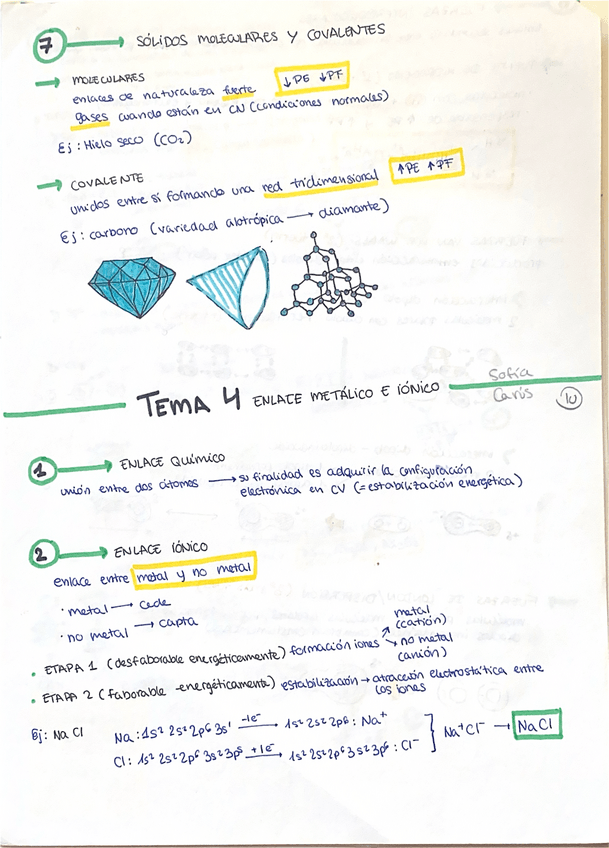 7 → SÓLIDOS MOLECULARES Y COVALENTES
→ MOLECULARES
enlaces de naturaleza fuerte ↓PE ↓PF
gases cuando están en CN (condiciones normales)
Ej: Hielo seco (CO₂)
→ COVALENTE
unidos entre sí formando una red tridimensional ↑PE ↑PF
Ej: carbono (variedad alotrópica → diamante)
TEMA 4 ENLACE METÁLICO E IÓNICO
Sofía
Carús
10
1 → ENLACE QUÍMICO
unión entre dos átomos → su finalidad es adquirir la configuración
electrónica en CV (= estabilización energética)
2 → ENLACE IÓNICO
enlace entre metal y no metal
· metal → cede
· no metal → capta
metal
(catión)
· ETAPA 1 (desfaborable energéticamente) formación iones
no metal
(anión)
· ETAPA 2 (faborable energéticamente) estabilización → atracción electrostática entre
los iones
Ej: NaCl
Na: 1s² 2s² 2p⁶ 3s¹ -1e⁻→ 1s² 2s² 2p⁶ : Na⁺
Cl: 1s² 2s² 2p⁶ 3s² 3p⁵ +1e⁻→ 1s² 2s² 2p⁶ 3s² 3p⁶ : Cl⁻
} Na⁺Cl⁻ → NaCl